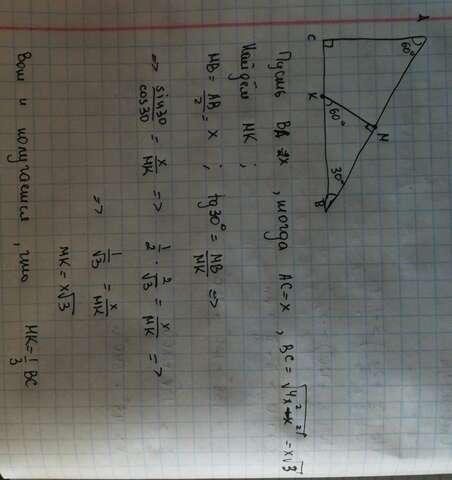 A
60°
C
K
60°
M
30°
B
Пусть BA=2x, тогда AC=x, BC=√4x²-x²=x√3
Найдём MK;
MB=AB/2=x; tg30°=MB/MK =>
=> sin30/cos30=x/MK => 1/2·2/√3=x/MK =>
=> 1/√3=x/MK
MK=x√3
Вот и получается, что MK=1/3BC